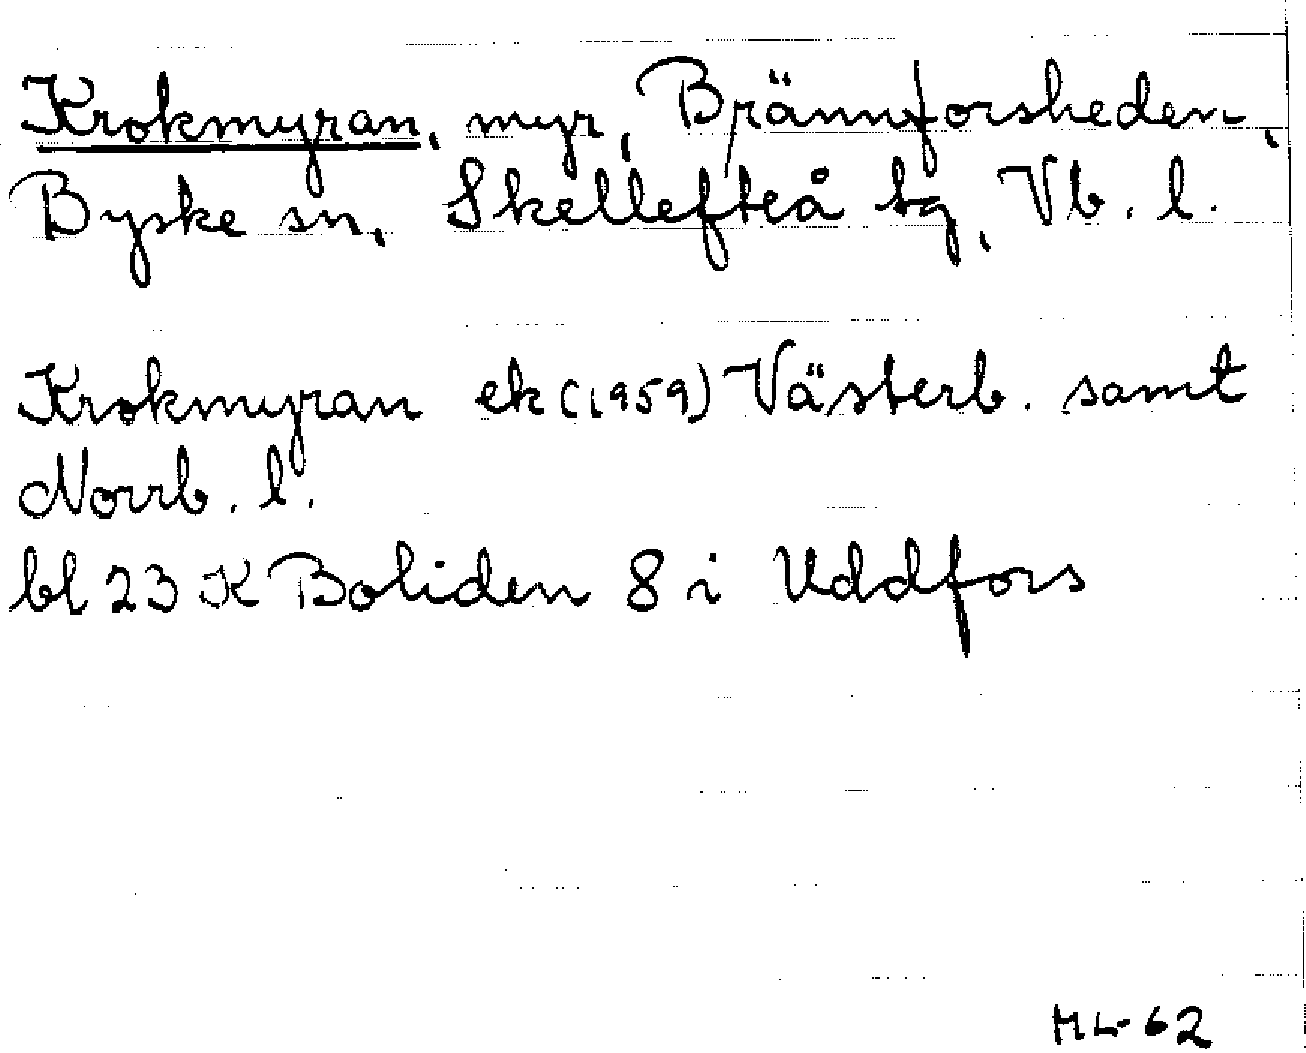 Krokmyran, myr, Brännforsheden,
Byske sn, Skellefteå tg, Vb. l.
Krokmyran ek (1959) Västerb. samt
Norrb. l.
bl 23 K Boliden 8 i Uddfors
ML-62